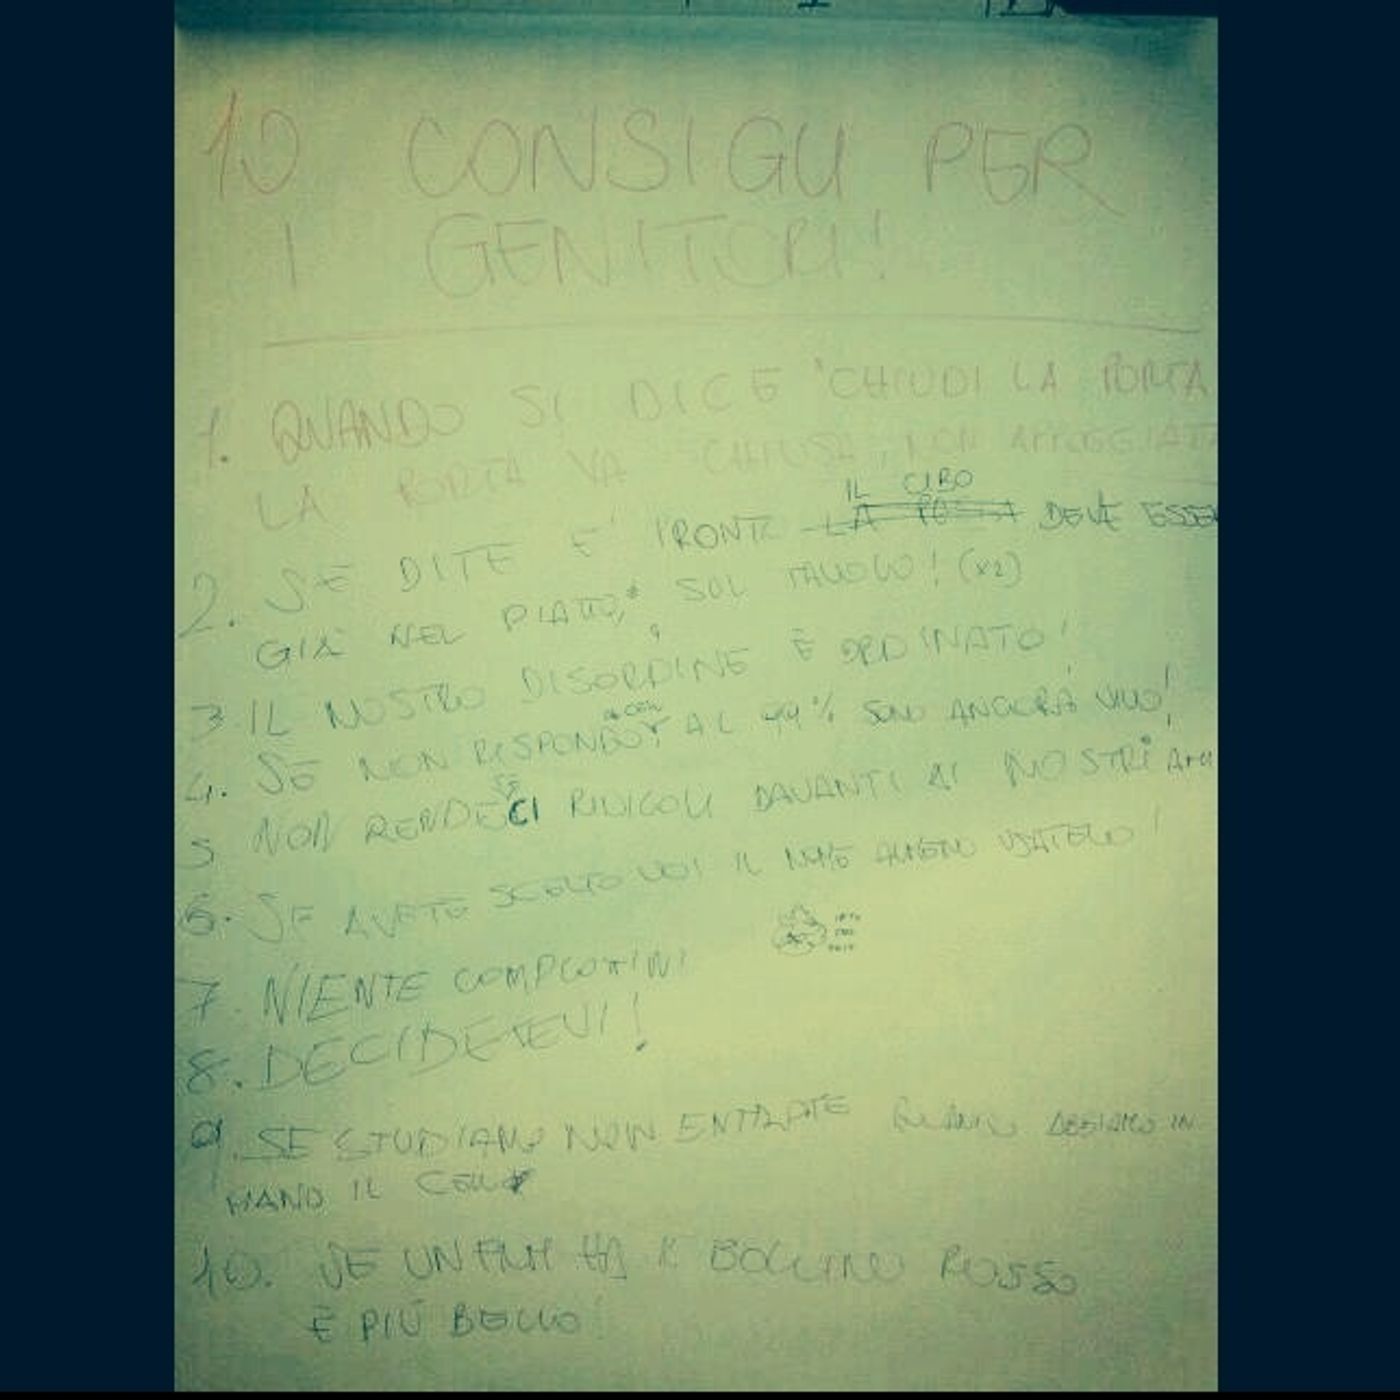 10 CONSIGLI PER
I GENITORI!
1. QUANDO SI DICE "CHIUDI LA PORTA
LA PORTA VA CHIUSA, NON APPOGGIATA
IL CIBO
2. SE DITE E' PRONTO DEVE ESSE
GIÀ NEL PIATTO,* SUL TAVOLO! (x2)
3. IL NOSTRO DISORDINE È ORDINATO!
4. SE NON RISPONDO AL 99% SONO ANCORA VIVO!
5 NON RENDETECI RIDICOLI DAVANTI AI NOSTRI AMI
6. SE AVETE SCELTO VOI IL NOME ALMENO USATELO!
7. NIENTE COMPLOTTINI
8. DECIDETEVI!
9. SE STUDIAMO NON ENTRATE QUANDO ABBIAMO IN
MANO IL CELL
10. SE UN FILM HA IL BOLLINO ROSSO
È PIÙ BELLO!